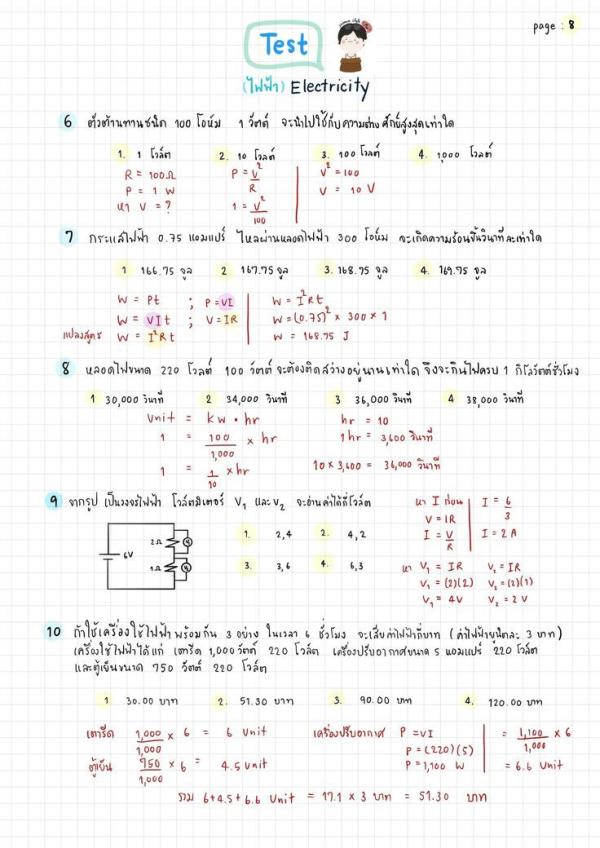 page : 8
Test
(ไฟฟ้า) Electricity
6 ตัวต้านทานชนิด 100 โอห์ม 1 วัตต์ จะนำไปใช้กับความต่างศักย์สูงสุดเท่าใด
1. 1 โวลต์ 2. 10 โวลต์ 3. 100 โวลต์ 4. 1,000 โวลต์
R = 100Ω P = V² / R V² = 100
P = 1 W V = 10 V
หา V = ? 1 = V² / 100
7 กระแสไฟฟ้า 0.75 แอมแปร์ ไหลผ่านหลอดไฟฟ้า 300 โอห์ม จะเกิดความร้อนขึ้นวินาทีละเท่าใด
1 166.75 จูล 2 167.75 จูล 3. 168.75 จูล 4. 169.75 จูล
W = Pt ; P = VI W = I²Rt
W = VIt ; V = IR W = (0.75)² × 300 × 1
แปลงสูตร W = I²Rt W = 168.75 J
8 หลอดไฟขนาด 220 โวลต์ 100 วัตต์ จะต้องติดสว่างอยู่นานเท่าใด จึงจะกินไฟครบ 1 กิโลวัตต์ชั่วโมง
1 30,000 วินาที 2 34,000 วินาที 3 36,000 วินาที 4 38,000 วินาที
Unit = kw • hr hr = 10
1 = 100 / 1,000 × hr 1 hr = 3,600 วินาที
1 = 1 / 10 × hr 10 × 3,600 = 36,000 วินาที
9 จากรูป เป็นวงจรไฟฟ้า โวลต์มิเตอร์ V₁ และ V₂ จะอ่านค่าได้กี่โวลต์
6V
2Ω
1Ω
1. 2,4 2. 4,2
3. 3,6 4. 6,3
หา I ก่อน I = 6 / 3
V = IR
I = V / R I = 2 A
หา V₁ = IR V₂ = IR
V₁ = (2)(2) V₂ = (2)(1)
V₁ = 4V V₂ = 2V
10 ถ้าใช้เครื่องใช้ไฟฟ้าพร้อมกัน 3 อย่าง ในเวลา 6 ชั่วโมง จะเสียค่าไฟฟ้ากี่บาท (ค่าไฟฟ้ายูนิตละ 3 บาท)
เครื่องใช้ไฟฟ้าได้แก่ เตารีด 1,000 วัตต์ 220 โวลต์ เครื่องปรับอากาศขนาด 5 แอมแปร์ 220 โวลต์
และตู้เย็นขนาด 750 วัตต์ 220 โวลต์
1 30.00 บาท 2. 51.30 บาท 3. 90.00 บาท 4. 120.00 บาท
เตารีด 1,000 / 1,000 × 6 = 6 Unit เครื่องปรับอากาศ P = VI = 1,100 / 1,000 × 6
P = (220)(5)
ตู้เย็น 750 / 1,000 × 6 = 4.5 Unit P = 1,100 W = 6.6 Unit
รวม 6+4.5+6.6 Unit = 17.1 × 3 บาท = 51.30 บาท